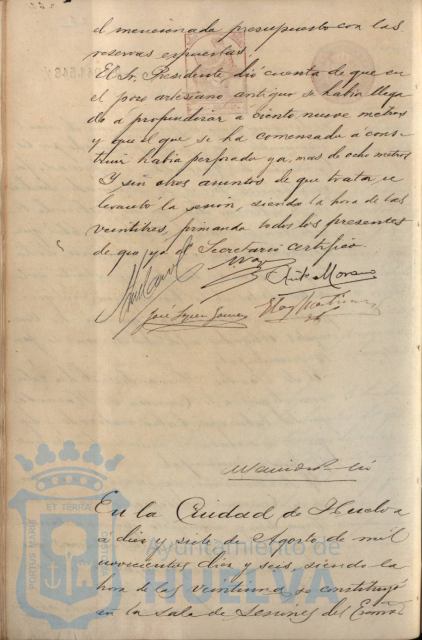 el mencionada presupuesto con las
reservas expuestas.
El Sr. Presidente dió cuenta de que en
el pozo artesiano antiguo se habia llega
do a profundizar a ciento nueve metros
y que el que se ha comenzado a cons-
truir habia perforado ya, mas de ocho metros
Y sin otros asuntos de que tratar se
levantó la sesión, siendo la hora de las
veintitres, firmando todos los presentes
de que yo el Secretario certifico.
Moreno
José
En la Ciudad de Huelva
a diez y siete de Agosto de mil
novecientos diez y seis, siendo la
hora de las veintiuna, se constituyó
en la sala de Sesiones del Excmo
PORTUS MARIS ET TERRAE CUSTODIA
Ayuntamiento de
HUELVA